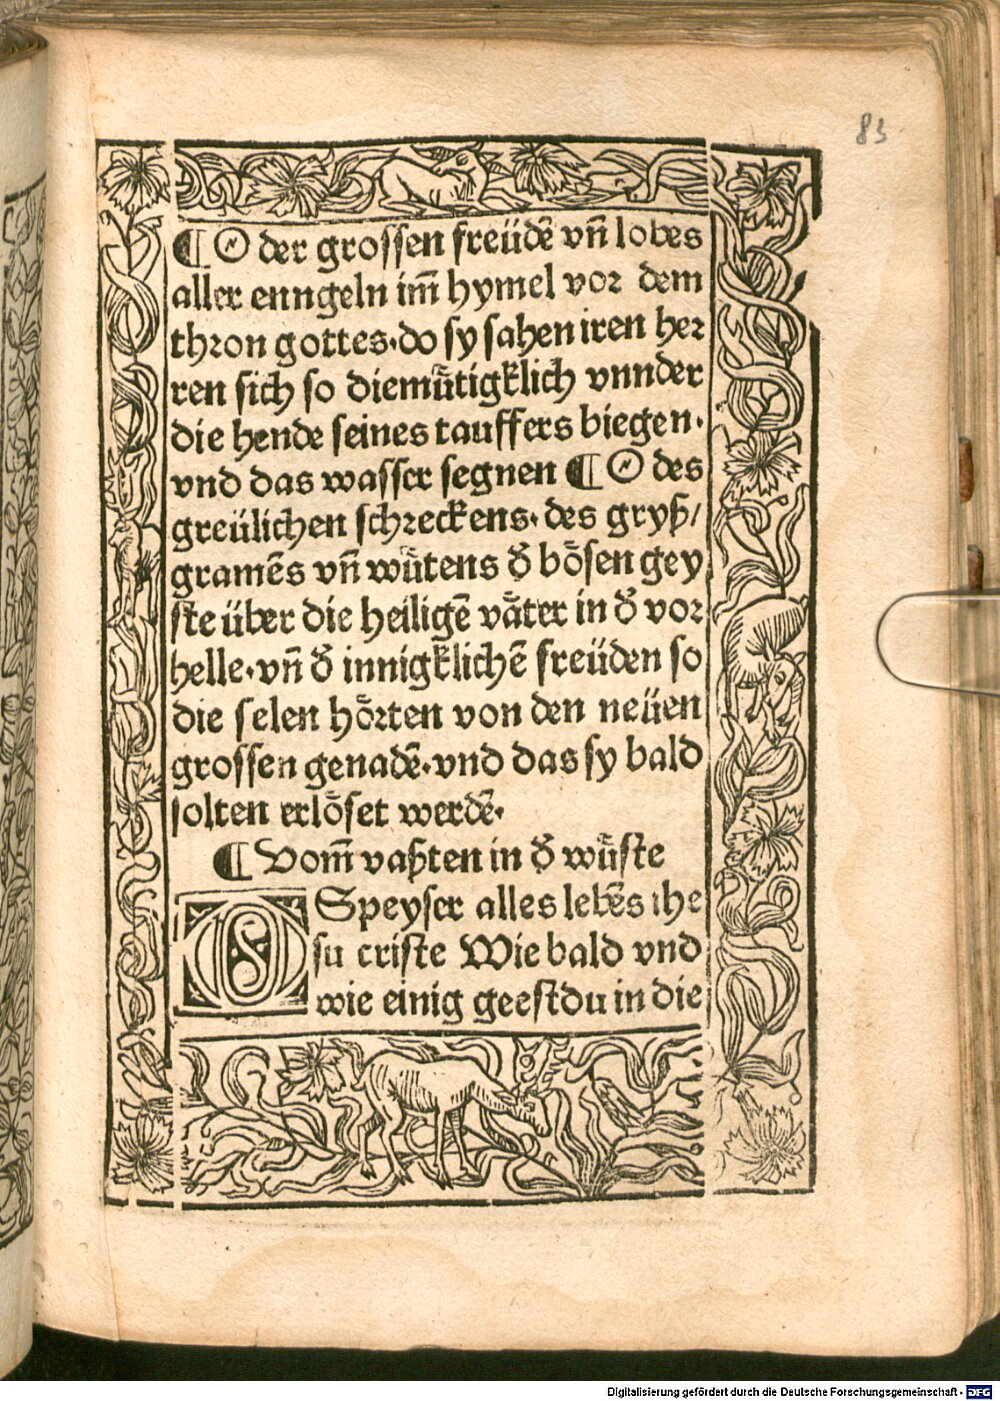 83
¶ O der grossen freüdē vn̄ lobes
aller enngeln im̄ hymel vor dem
thron gottes·do sy sahen iren her
ren sich so diemuͤtigklich vnnder
die hende seines tauffers biegen·
vnd das wasser segnen ¶ O des
greülichen schreckens·des gryß/
gramēs vn̄ wuͤtens đ boͤsen gey
ste über die heiligē vaͤter in đ vor
helle·vn̄ đ innigklichē freüden so
die selen hoͤrten von den neüen
grossen genadē·vnd das sy bald
solten erloͤset werdē·
¶ Vom̄ vaßten in đ wuͤste
O Speyser alles lebēs ihe
su criste Wie bald vnd
wie einig geestdu in die
Digitalisierung gefördert durch die Deutsche Forschungsgemeinschaft - DFG